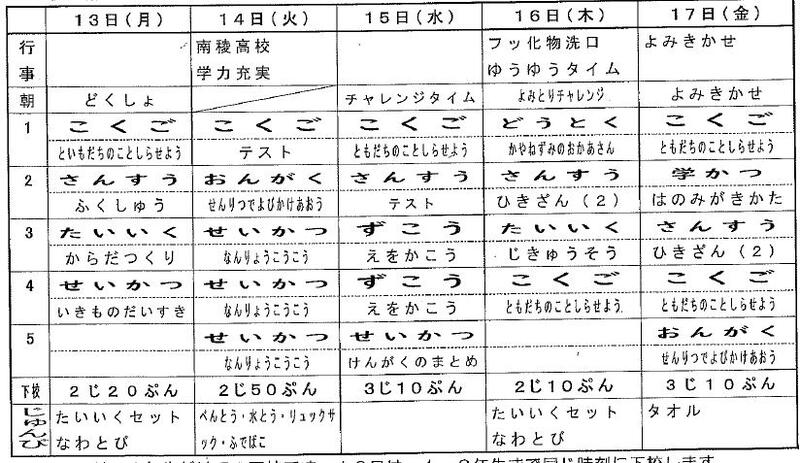 13日(月) 14日(火) 15日(水) 16日(木) 17日(金)
行事 南稜高校 フッ化物洗口 よみきかせ
学力充実 ゆうゆうタイム
朝 どくしょ チャレンジタイム よみとりチャレンジ よみきかせ
1 こくご こくご こくご どうとく こくご
といもだちのことしらせよう テスト ともだちのことしらせよう かやねずみのおかあさん ともだちのことしらせよう
2 さんすう おんがく さんすう さんすう 学かつ
ふくしゅう せんりつでよびかけあおう テスト ひきざん(2) はのみがきかた
3 たいいく せいかつ ずこう たいいく さんすう
からだつくり なんりょうこうこう えをかこう じきゅうそう ひきざん(2)
4 せいかつ せいかつ ずこう こくご こくご
いきものだいすき なんりょうこうこう えをかこう ともだちのことしらせよう ともだちのことしらせよう
5 せいかつ せいかつ おんがく
なんりょうこうこう けんがくのまとめ せんりつでよびかけあおう
下校 2じ20ぷん 2じ50ぷん 3じ10ぷん 2じ10ぷん 3じ10ぷん
じゅんび たいいくセット べんとう・水とう・リュックサ たいいくセット タオル
なわとび ック・ふでばこ なわとび